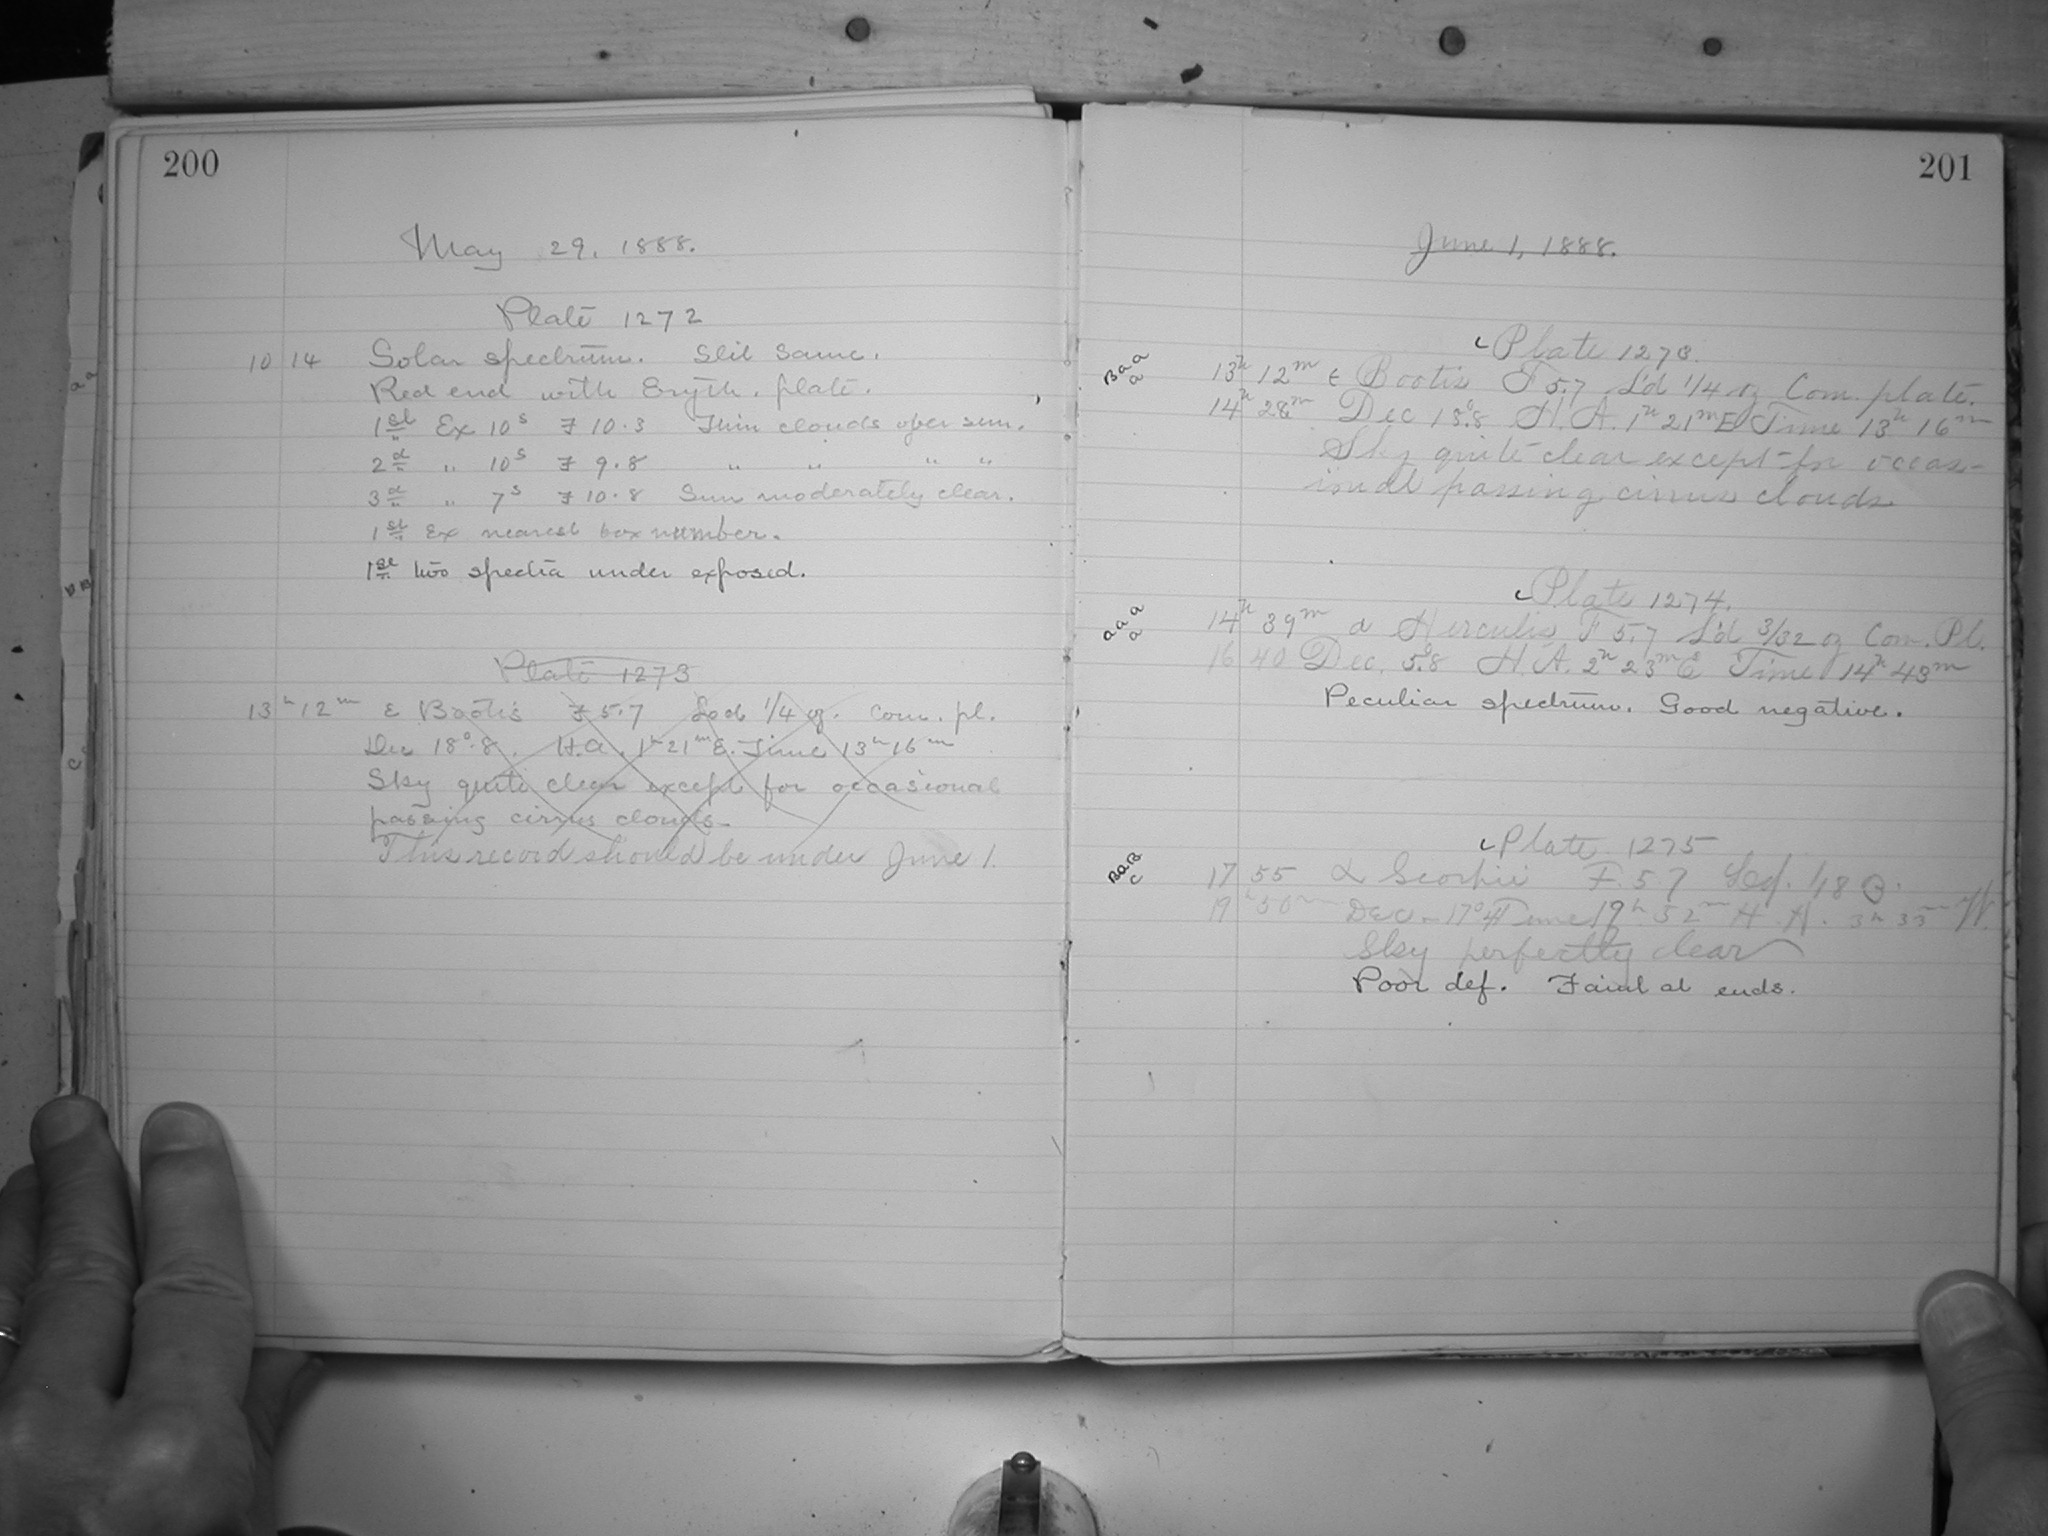 200
May 29, 1888.
Plate 1272
10 14 Solar spectrum. Slit same.
Red end with Eryth. plate.
1st Ex 10s F 10.3 Thin clouds over sun.
2d " 10s F 9.8 " " " "
3d " 7s F 10.8 Sun moderately clear.
1st Ex nearest box number.
1st two spectra under exposed.
Plate 1273
13h 12m ε Bootis F 5.7 Lod 1/4 oz. Com. pl.
Dec 18°.8. H.A. 1h 21m E. Time 13h 16m
Sky quite clear except for occasional
passing cirrus clouds.
This record should be under June 1.
201
June 1, 1888.
Plate 1273.
Baa
a
13h 12m ε Bootis F 5.7 L'd 1/4 oz Com. plate.
14h 28m Dec 18°.8 H.A. 1h 21m E Time 13h 16m
Sky quite clear except for occas-
ional passing cirrus clouds
Plate 1274.
aaa
a
14h 39m α Herculis F 5.7 L'd 3/32 oz Com. Pl.
16 40 Dec. 5°.8 H.A. 2h 23m E Time 14h 43m
Peculiar spectrum. Good negative.
Plate 1275
BaB
c
17 55 α Scorpii F. 5.7 1/8
19h 50m Dec - 17°.4 Time 19h 52m H.A. 3h 33m W.
Sky perfectly clear
Poor def. Faint at ends.